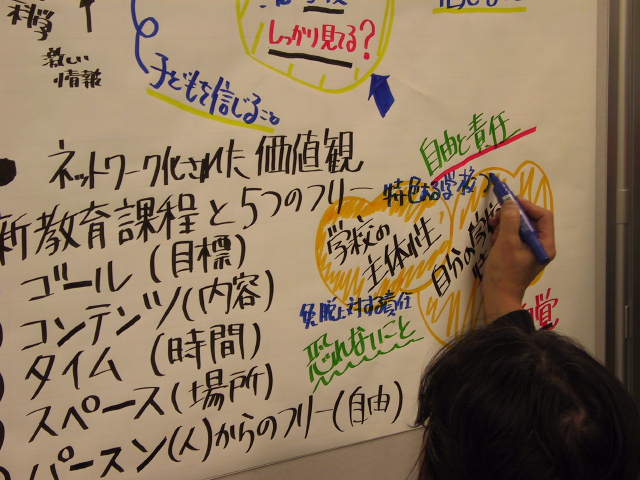 科学
激しい
情報
しっかり見てる?
子どもを信じること。
ネットワーク化された価値観
新教育課程と5つのフリー
ゴール(目標)
コンテンツ(内容)
タイム(時間)
スペース(場所)
パースン(人)からのフリー(自由)
自由と責任
特色ある学校つ
学校の
主体性
自分の学校
免脱に対する責任
恐れないこと
覚